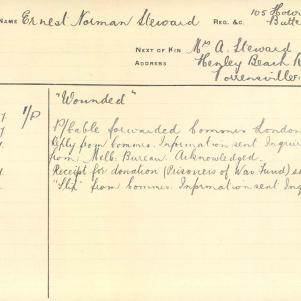 NAME Ernest Norman Steward REG. &C. 105 How
Butte
NEXT OF KIN Mrs A. Steward
ADDRESS Henley Beach R
Torrensville
1/P "Wounded"
P/Cable forwarded Commr London
Reply from Commr. Information sent Inquir
from Melb. Bureau. Acknowledged.
Receipt for donation (Prisoners of War Fund) se
"Slip" from Commr. Information sent Inq